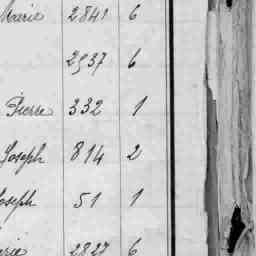 Marie 2841 6
2937 6
Pierre 332 1
Joseph 814 2
Joseph 51 1
2827 6